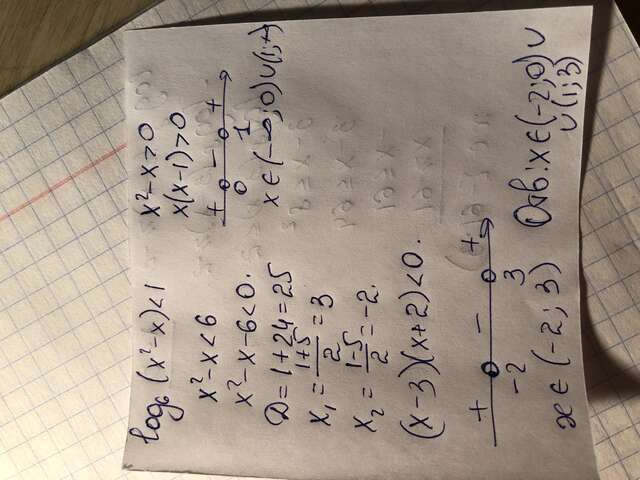 log₆ (x²-x)<1
x²-x<6
x²-x-6<0.
D=1+24=25
x₁ = (1+5)/2 = 3
x₂ = (1-5)/2 = -2.
(x-3)(x+2)<0.
+ - +
-2 3
x ∈ (-2; 3)
x²-x>0
x(x-1)>0
+ - +
0 1
x ∈ (-∞; 0) ∪ (1; +
Отв: x ∈ (-2; 0) ∪
∪ (1; 3)